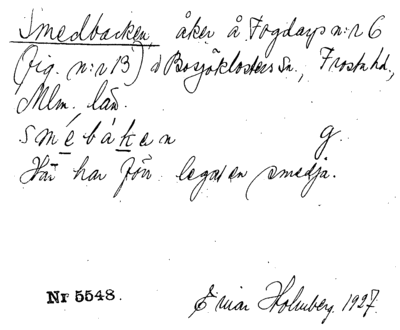 Smedbacken, åker å Fogdarp n:r 6
(fig. n:r 13) i Bosjöklosters Sn., Frosta hd,
Mlm. län.
smébå̀ken g.
Här har förr legat en smedja.
Nr 5548.
Einar Holmberg. 1927.